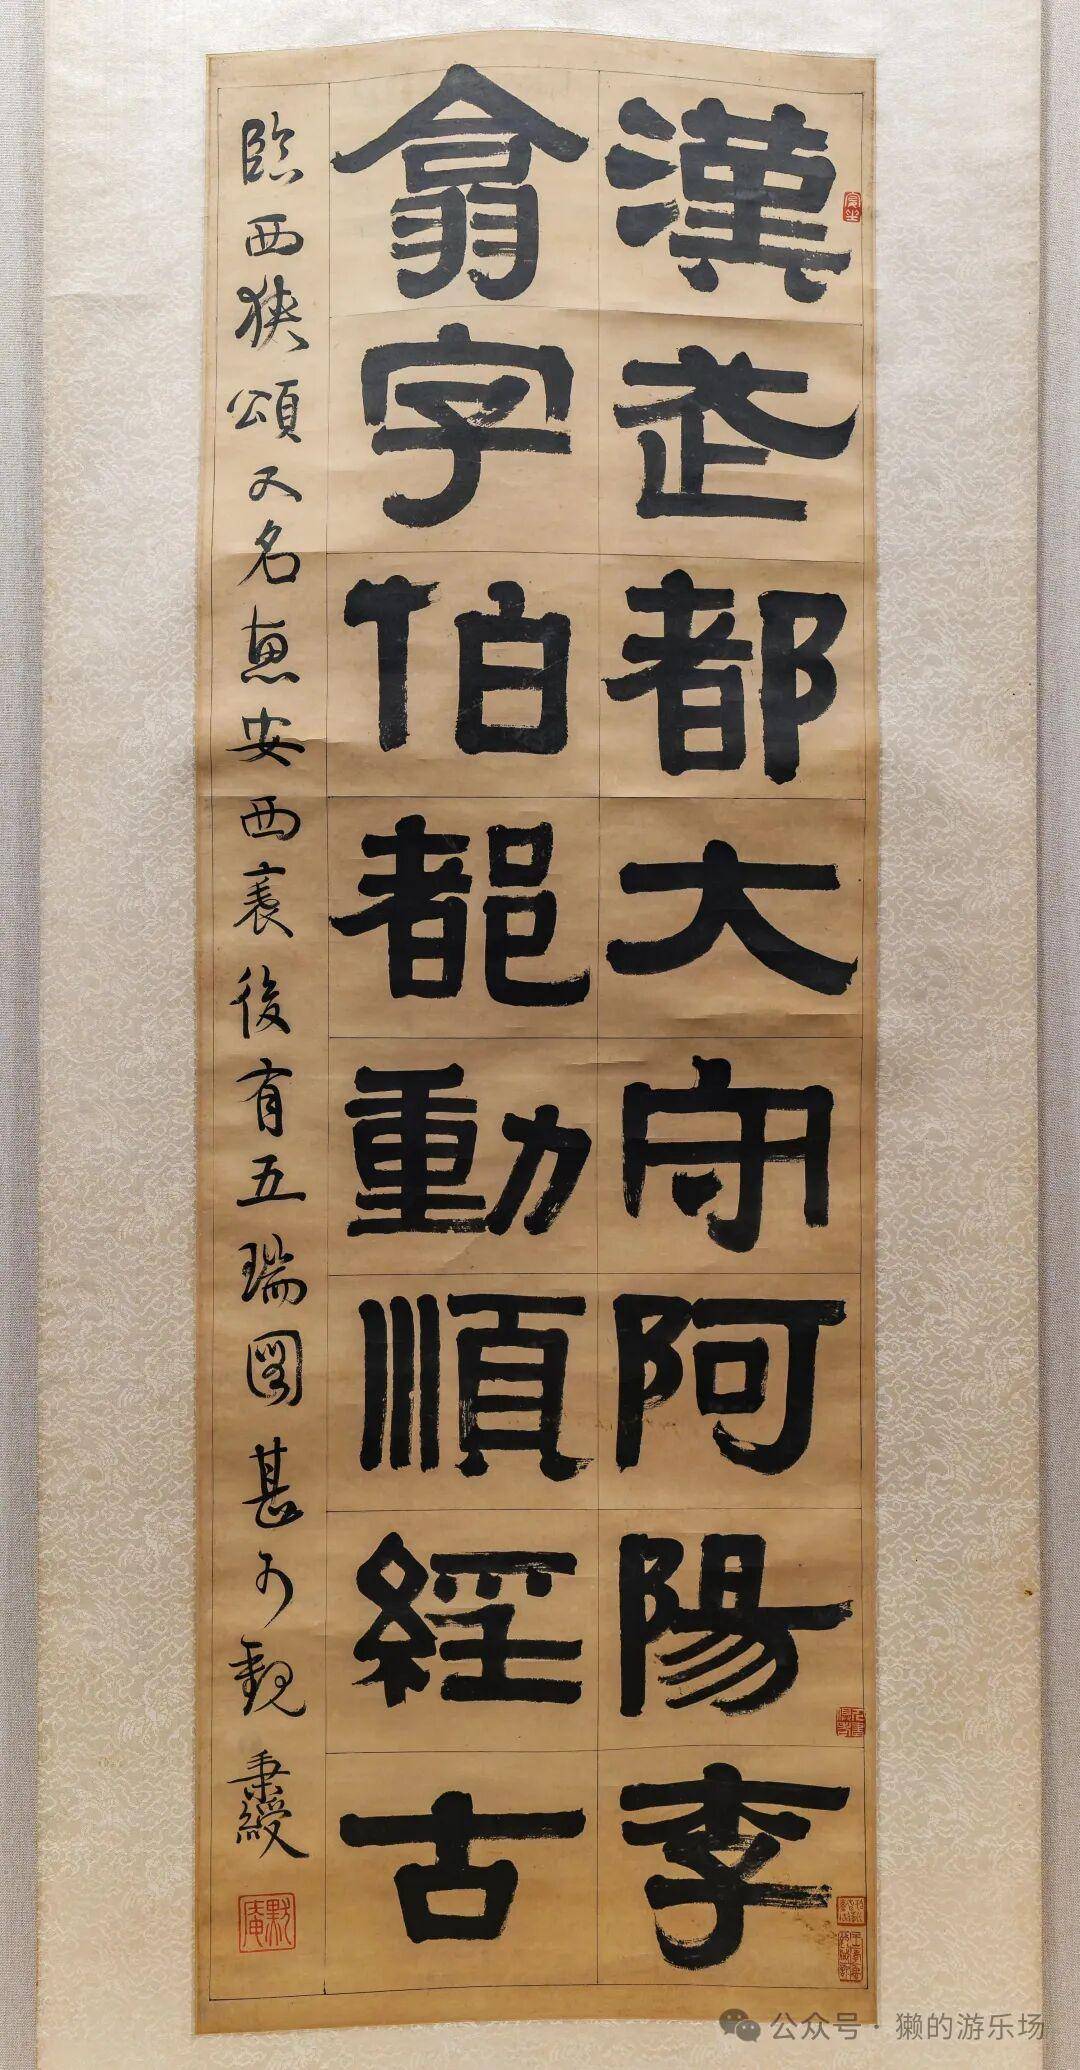 漢武都大守阿陽李
翕字伯都動順經古
臨西狹頌又名惠安西表後有五瑞圖甚可觀
秉綬
默庵
公众号·獭的游乐场